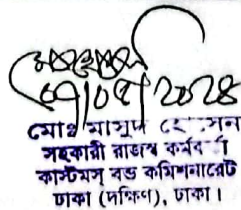 ০৭/০৫/2024
মোঃ মাসুদ হোসেন
সহকারী রাজস্ব কর্মকর্তা
কাস্টমস্ বন্ড কমিশনারেট
ঢাকা (দক্ষিণ), ঢাকা।